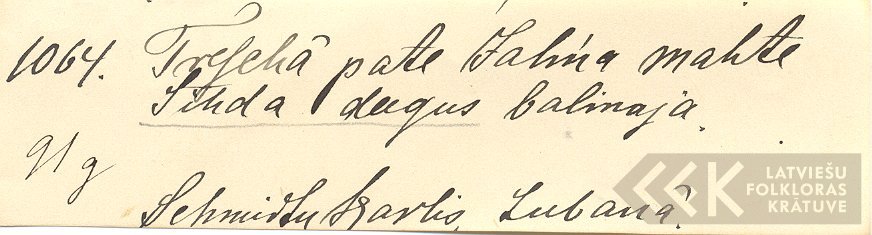 1064. Treschâ pate Jahņa mahte
Sihda deegus balinaja.
91 g
Schmidtu Karlis, Lubanâ.
LATVIEŠU
FOLKLORAS
KRĀTUVE